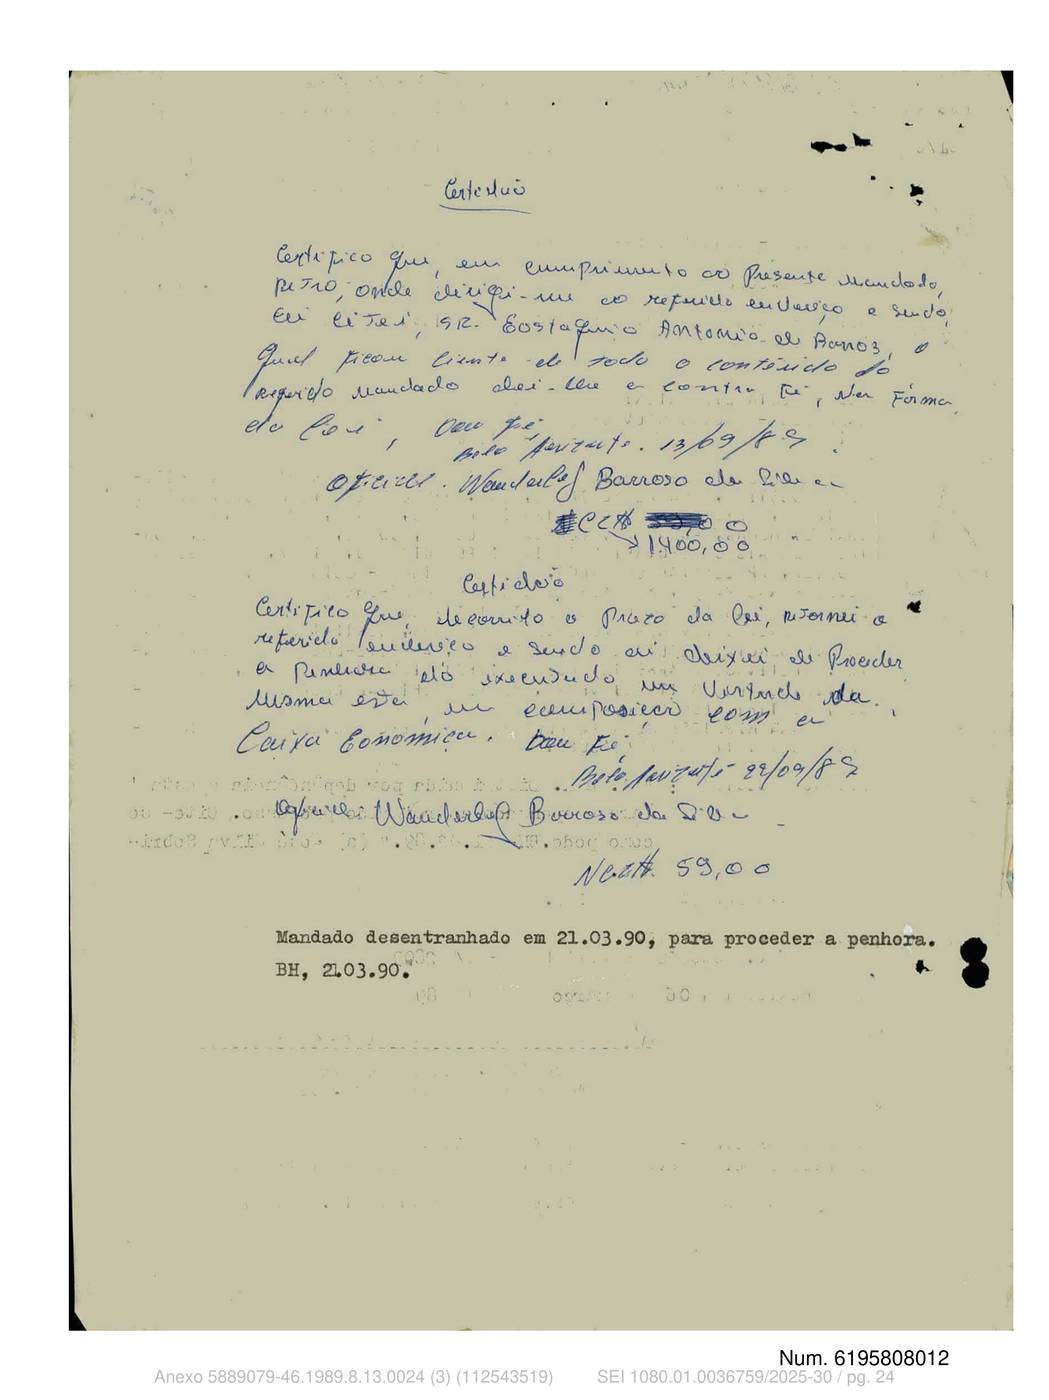 Certidão
Certifico que, em cumprimento ao Presente Mandado,
retro, onde dirigi-me ao referido endereço e sendo,
ei citei, SR. Eostaquio Antonio de Barros, o
qual ficou ciente de todo o conteúdo do
referido Mandado dei-lhe a contra fé, na Forma
da lei, Dou fé,
Belo Horizonte. 13/09/89
Oficial. Wanderley Barroso da Silva
CZ$ 00
1.400,00
Certidão
Certifico que, decorrido o Prazo da lei, retornei o
referido endereço e sendo ai deixei de Proceder
a Penhora do executado em Virtude da
mesma está em composição com a
Caixa Economica. Dou Fé
Belo Horizonte 22/09/89
Oficial Wanderley Barroso da Silva
NCz$. 59,00
Mandado desentranhado em 21.03.90, para proceder a penhora.
BH, 21.03.90.
Num. 6195808012
Anexo 5889079-46.1989.8.13.0024 (3) (112543519) SEI 1080.01.0036759/2025-30 / pg. 24